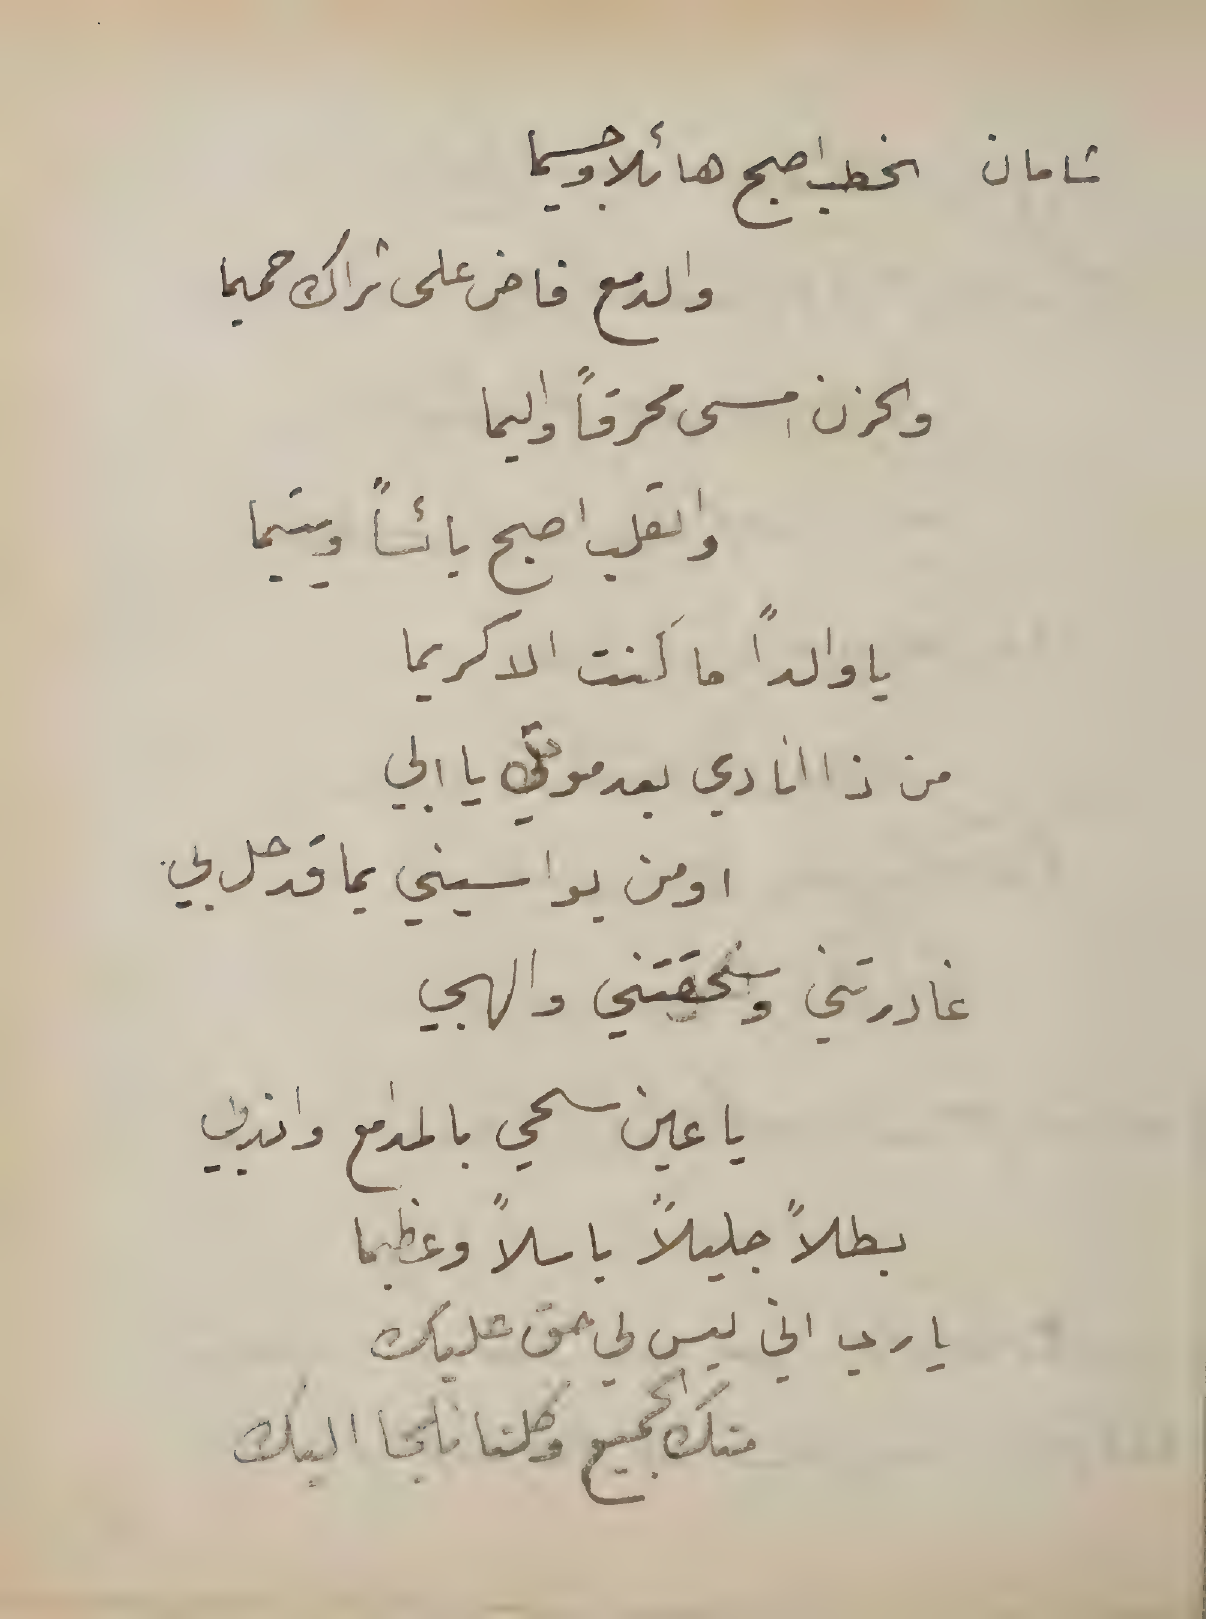 شامان الخطب اصبح هائلا وجسيما
والدمع فاض على ثراك حميما
والحزن امسى محرقاً واليما
والقلب اصبح يائساً ويتيما
يا والداً ما كَنت الا كريما
من ذا انادي بعد موتك يا ابي
او من يواسيني بما قد حل بي
غادرتني والهبي
يا عين سحي بالمدامع واندبي
بطلاً جليلاً باسلاً وعظيما
يا رب اني ليس لي حق عليك
منك الجميع وكلنا نلجا اليك